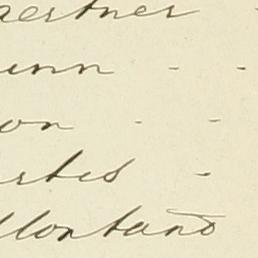 aertner
unn - -
on - -
rtes -
Montano